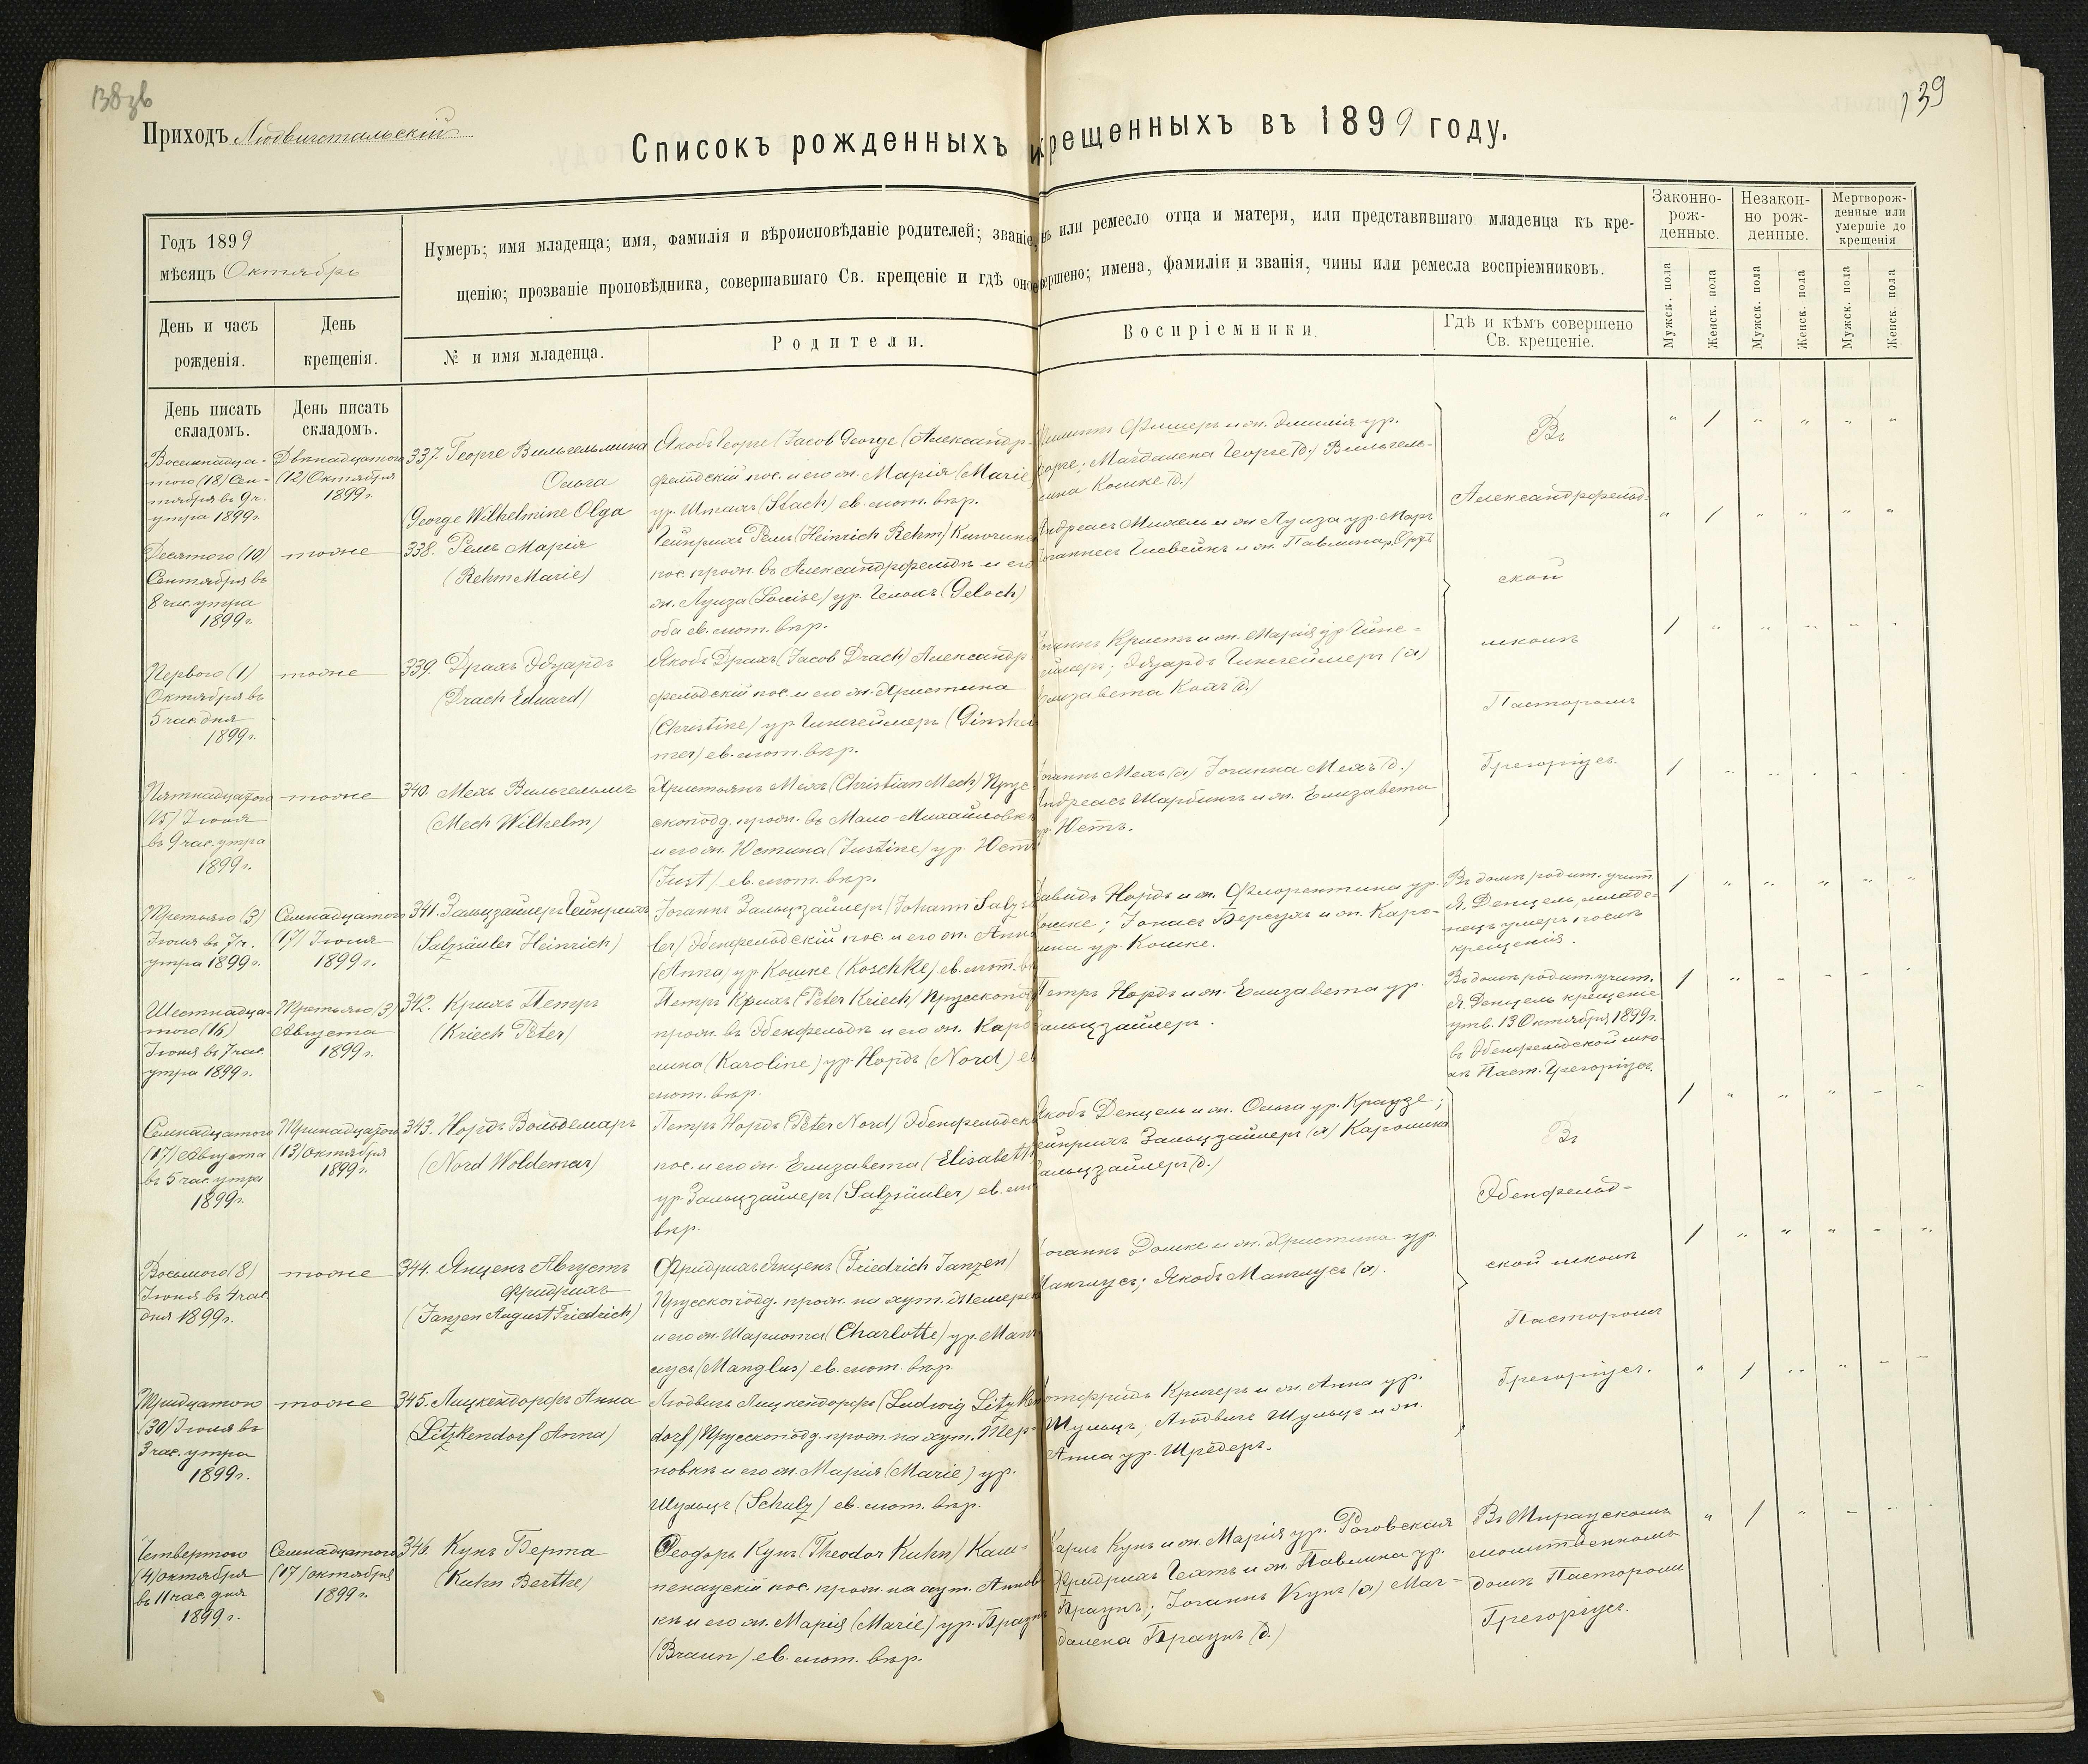 138 зв
139
Приходъ Людвигстальскій
Списокъ рожденныхъ и крещенныхъ въ 1899 году.
Годъ 1899
мѣсяцъ Октябрь
Нумеръ; имя младенца; имя, фамилія и вѣроисповѣданіе родителей; званіе, или ремесло отца и матери, или представившаго младенца къ кре-
щенію; прозваніе проповѣдника, совершавшаго Св. крещеніе и гдѣ оное совершено; имена, фамиліи и званія, чины или ремесла воспріемниковъ.
Законно-
рож-
денные.
Незакон-
но рож-
денные.
Мертворож-
денные или
умершіе до
крещенія
Мужск. пола
Женск. пола
Мужск. пола
Женск. пола
Мужск. пола
Женск. пола
День и часъ
рожденія.
День
крещенія.
№ и имя младенца.
Родители.
Воспріемники
Гдѣ и кѣмъ совершено
Св. крещеніе.
День писать
складомъ.
День писать
складомъ.
Восемнадца-
того (18) Сен-
тября въ 9 ч.
утра 1899 г.
Двѣнадцатого
(12) Октября
1899 г.
337. Георге Вильгельмина
Ольга
(George Wilhelmine Olga
Якобъ Георге (Jacob George (Александр-
фельдскій пос. и его ж. Марія (Marie)
ур. Штахъ (Stach) ев. лют. вѣр.
Филиппъ Фишеръ и ж. Эмилія ур.
Георге; Магдалена Георге (д.) Вильгель-
мина Кошке (д.)
Въ
Александрфельд-
ской
школѣ
Пасторомъ
Грегоріусъ.
" 1 " " " "
Десятого (10)
Сентября въ
8 час. утра
1899 г.
тоже
338. Ремъ Марія
(Rehm Marie)
Гейнрихъ Ремъ (Heinrich Rehm)
пос. прож. въ Александрфельдѣ и его
ж. Луиза (Louise) ур. Гелохъ (Geloch)
оба ев. лют. вѣр.
Андреасъ Михель и ж. Луиза ур. Марг
Іоганнесъ и ж. Павлина ур.
" 1 " " " "
Перваго (1)
Октября въ
5 час. дня
1899 г.
тоже
339. Драхъ Эдуардъ
(Drach Eduard)
Якобъ Драхъ (Jacob Drach) Александр-
фельдскій пос. и его ж. Христина
(Christine) ур. Гинсгеймеръ (Ginshei
mer) ев. лют. вѣр.
Іоганнъ Кристъ и ж. Марія ур. Гинс-
геймеръ; Эдуардъ Гинсгеймеръ (х)
Елизавета Колъ (д.)
1 " " " " "
Пятнадцатого
(15) Іюня
въ 9 час. утра
1899 г.
тоже
340. Мехъ Вильгельмъ
(Mech Wilhelm)
Христьянъ Мехъ (Christian Mech) Прус-
скопод. прож. въ Мало-Михайловкѣ
и его ж. Юстина (Justine) ур. Юстъ
(Just) ев. лют. вѣр.
Іоганнъ Мехъ (х) Іоганна Мехъ (д.)
Андреасъ Шарбинъ и ж. Елизавета
ур. Юстъ.
1 " " " " "
Третьяго (3)
Іюня въ 7 ч.
утра 1899 г.
Семнадцатого
(17) Іюня
1899 г.
341. Зальцзайлеръ Гейнрихъ
(Salzsäuler Heinrich)
Іоганнъ Зальцзайлеръ (Johann Salzsäu
ler) Эбенфельдскій пос. и его ж. Анна
(Anna) ур. Кошке (Koschke) ев. лют. вѣ
Давидъ Нордъ и ж. Флорентина ур.
Кошке; Іонасъ Берсухъ и ж. Каро-
лина ур. Кошке.
Въ домѣ родит. учит.
Я. Денцель, младе-
нецъ умеръ послѣ
крещенія.
1 " " " " "
Шестнадца-
того (16)
Іюня въ 7 час.
утра 1899 г.
Третьяго (3)
Августа
1899 г.
342. Крихъ Петръ
(Kriech Peter)
Петръ Крихъ (Peter Kriech) Прусскопод
прож. въ Эбенфельдѣ и его ж. Каро
лина (Karoline) ур. Нордъ (Nord) ев
лют. вѣр.
Петръ Нордъ и ж. Елизавета ур.
Зальцзайлеръ.
Въ домѣ родит. учит.
Я. Денцель крещеніе
утв. 13 Октября 1899 г.
въ Эбенфельдской шко-
лѣ Паст. Грегоріусъ.
1 " " " " "
Семнадцатого
(17) Августа
въ 5 час. утра
1899 г.
Тринадцатого
(13) октября
1899 г.
343. Нордъ Вольдемаръ
(Nord Woldemar)
Петръ Нордъ (Peter Nord) Эбенфельдскі
пос. и его ж. Елизавета (Elisabeth)
ур. Зальцзайлеръ (Salzsäuler) ев. лют
вѣр.
Якобъ Денцель и ж. Ольга ур. Краузе;
Гейнрихъ Зальцзайлеръ (х) Каролина
Зальцзайлеръ (д.)
Въ
Эбенфельд-
ской школѣ
Пасторомъ
Грегоріусъ.
1 " " " " "
Восьмого (8)
Іюня въ 4 час.
дня 1899 г.
тоже
344. Янценъ Августъ
Фридрихъ
(Janzen August Friedrich)
Фридрихъ Янценъ (Friedrich Janzen)
Прусскопод. прож. на хут.
и его ж. Шарлота (Charlotte) ур. Манг-
лусъ (Manglus) ев. лют. вѣр.
Іоганнъ Домке и ж. Христина ур.
Манглусъ; Якобъ Манглусъ (х).
1 " " " " "
Тридцатого
(30) Іюля въ
3 час. утра
1899 г.
тоже
345. Лицкендорфъ Анна
(Litzkendorf Anna)
Людвигъ Лицкендорфъ (Ludwig Litzken
dorf) Прусскопод. прож. на хут. Тер-
новкѣ и его ж. Марія (Marie) ур.
Шульцъ (Schulz) ев. лют. вѣр.
Готфридъ Кригеръ и ж. Анна ур.
Шульцъ; Людвигъ Шульцъ и ж.
Анна ур. Шредеръ.
" 1 " " " "
Четвертого
(4) октября
въ 11 час. дня
1899 г.
Семнадцатого
(17) октября
1899 г.
346. Кунъ Берта
(Kuhn Berthe)
Теодоръ Кунъ (Theodor Kuhn) Кам-
пенаускій пос. прож. на хут. Аннов
кѣ и его ж. Марія (Marie) ур. Браунъ
(Braun) ев. лют. вѣр.
Карлъ Кунъ и ж. Марія ур. Роговская
Фридрихъ Гехтъ и ж. Павлина ур.
Браунъ; Іоганнъ Кунъ (х) Маг-
далена Браунъ (д.)
Въ Мираускомъ
молитвенномъ
домѣ Пасторомъ
Грегоріусъ.
" 1 " " " "